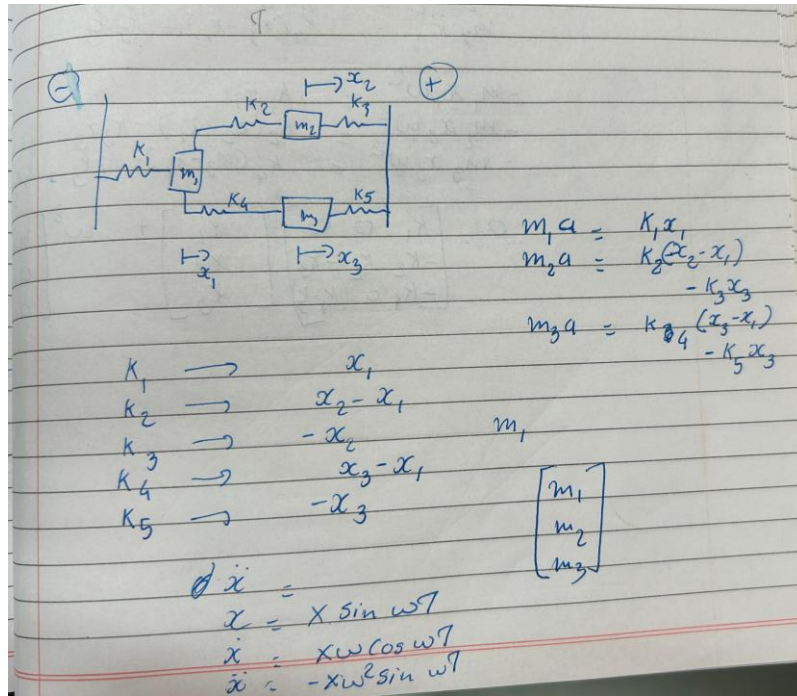 x₂
⊖ ⊕
K₂ K₃
m₂
K₁
m₁
K₄ K₅
m₃
x₁ x₃
m₁a = K₁x₁
m₂a = K₂(-x₂-x₁)
- K₃x₃
m₃a = K₄(x₃-x₁)
- K₅x₃
K₁ → x₁
K₂ → x₂-x₁
K₃ → -x₂
m₁
K₄ → x₃-x₁
K₅ → -x₃
[m₁
m₂
m₃]
ẍ =
x = X sin ωT
ẋ = Xω cos ωT
ẍ = -Xω² sin ωT